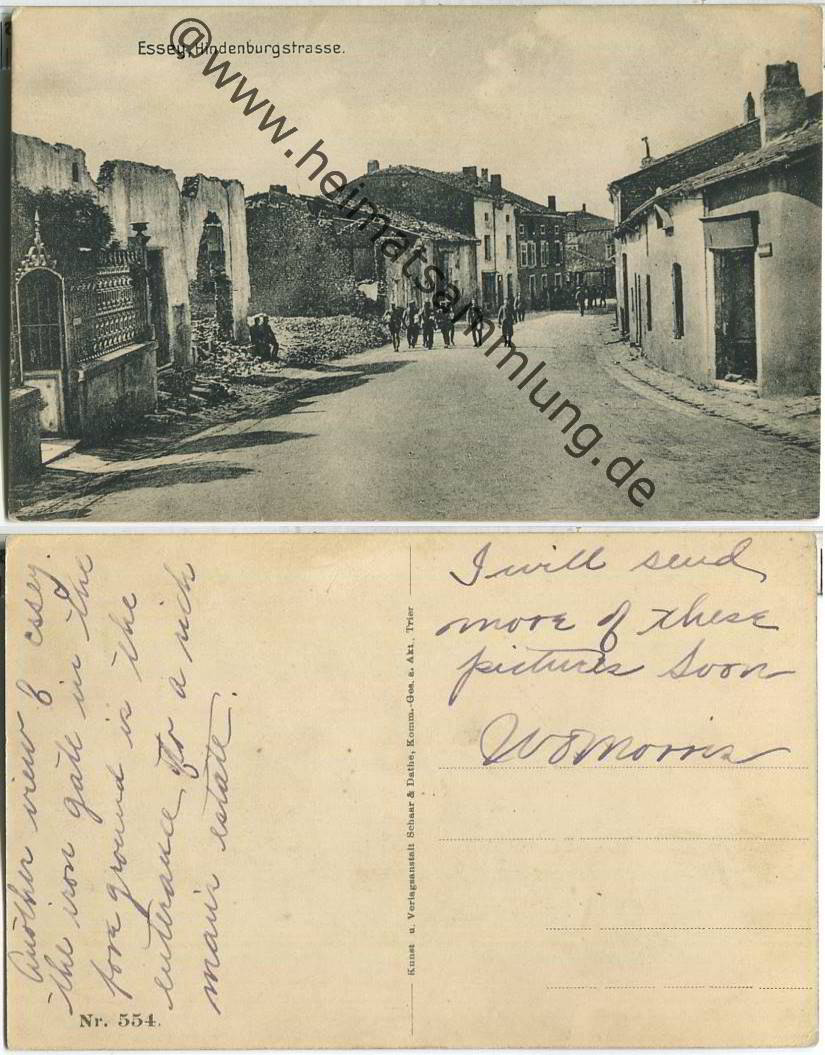 Essey, Hindenburgstrasse.
@www.heimatsammlung.de
Another view of essey.
the iron gate in the
fore ground is the
enterance for a rich
mans estate.
Nr. 554.
Kunst u. Verlagsanstalt Schaar & Dathe, Komm.-Ges. a. Akt., Trier
I will send
more of these
pictures soon
WSMorris